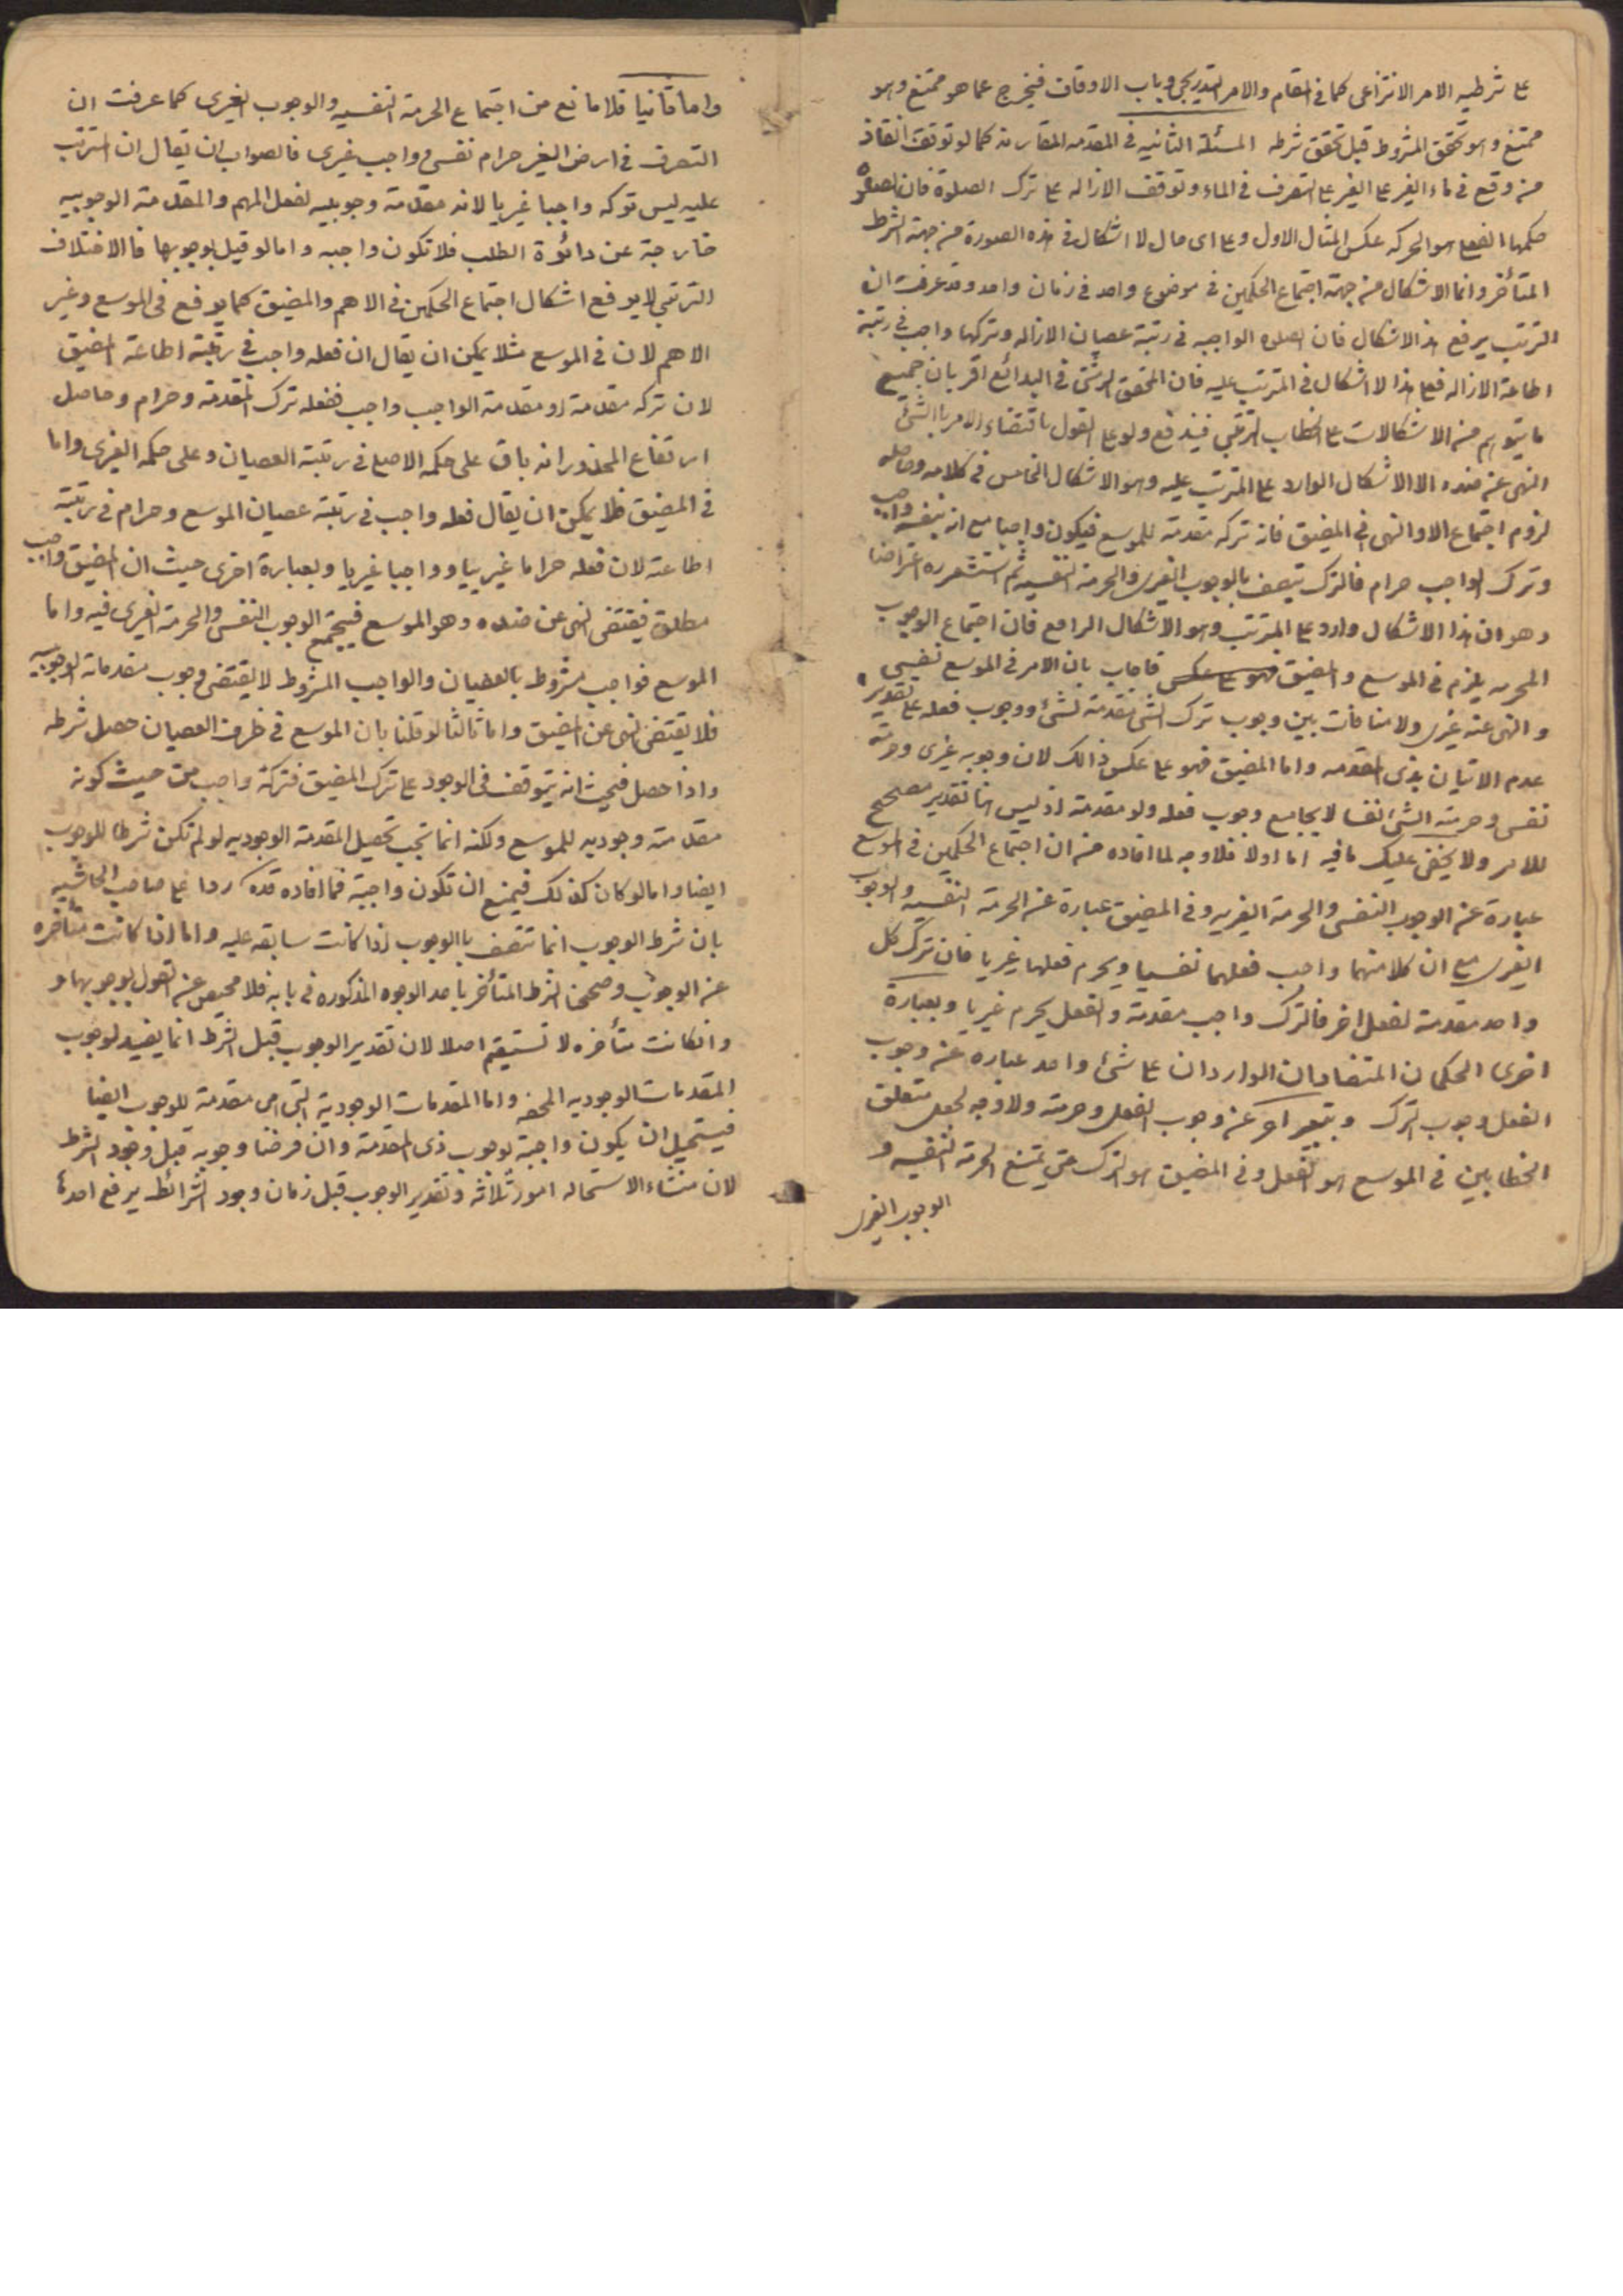 على شرطيه الامر الانتزاعى كما فى المقام والامر التدريجى وباب الاوقات فيخرج عما هو ممتنع وهو
ممتنع وهو تحقق المشروط قبل تحقق شرطه المسئلة الثانيه فى المقدمه المقارنه كما لو توقف انقاذ
من وقع فى ماء الغير على التصرف فى الماء وتوقف الازاله على ترك الصلوة فان الصلوة
حكمها الفعلى هو الحركه عكس المثال الاول وعلى اى حال لا اشكال فى هذه الصورة من جهة الشرط
المتأخر وانما الاشكال من جهة اجتماع الحكمين فى موضوع واحد فى زمان واحد وقد عرفت ان
الترتب يرفع هذا الاشكال فان الصلوه الواجبه فى رتبة عصيان الازاله وتركها واجب فى رتبة
اطاعة الازاله فعلى هذا لا اشكال فى المترتب عليه فان المحقق الرشتى فى البدائع اقر بان جميع
ما يتوهم من الاشكالات على الخطاب الترتبى فيندفع ولو على القول باقتضاء الامر باالشئ
النهى عن ضده الا الاشكال الوارد على المترتب عليه وهو الاشكال الخامس فى كلامه وحاصله
لزوم اجتماع الامر والنهى فى المضيق فان تركه مقدمة للموسع فيكون واجبا مع انه بنفسه واجب
وترك الواجب حرام فالترك يتصف بالوجوب الغيرى والحرمة النفسيه ثم استشعره اعتراضا
وهو ان هذا الاشكال وارد على المترتب وهو الاشكال الرابع فان اجتماع الوجوب
الحرمه يلزم فى الموسع والمضيق فهو على عكس فاجاب بان الامر فى الموسع نفسى
والنهى عنه غيرى ولا منافات بين وجوب ترك الشئ مقدمة لشئ ووجوب فعله على تقدير
عدم الاتيان بذى المقدمه واما المضيق فهو على عكس ذالك لان وجوبه غيرى وحرمته
نفسى وحرمته الشئ نفسا لا يجامع وجوب فعله ولو مقدمة اذ ليس هنا تقدير مصحح
للامر ولا يخفى عليك ما فيه اما اولا فلا وجه لما افاده من ان اجتماع الحكمين فى الموسع
عبارة عن الوجوب النفسى والحرمة الغيريه وفى المضيق عبارة عن الحرمة النفسيه والوجوب
الغيرى مع ان كلا منهما واجب فعلهما نفسيا ويحرم فعلها غيريا فان ترك كل
واحد مقدمة لفعل اخر فالترك واجب مقدمة والفعل يحرم غيريا وبعبارة
اخرى الحكمان المتضادان الواردان على شئ واحد عباره عن وجوب
الفعل وجوب الترك وبتعبير اخر عن وجوب الفعل وحرمته ولا وجه لجعل متعلق
الخطابين فى الموسع هو الفعل وفى المضيق هو الترك حتى تمتنع الحرمة النفسيه و
الوجوب الغيرى
واما ثانيا فلا مانع من اجتماع الحرمة النفسيه والوجوب الغيرى كما عرفت ان
التصرف فى ارض الغير حرام نفسى وواجب غيرى فالصواب ان يقال ان المترتب
عليه ليس توكه واجبا غيريا لانه مقدمة وجوبيه لفعل المهم والمقدمة الوجوبيه
خارجة عن دائرة الطلب فلا تكون واجبه واما لو قيل بوجوبها فاالاختلاف
الترتبى لا يرفع اشكال اجتماع الحكمين فى الاهم والمضيق كما يرفع فى الموسع وغير
الاهم لان فى الموسع مثلا يمكن ان يقال ان فعله واجب فى رتبة اطاعة المضيق
لان تركه مقدمة ومقدمة الواجب واجب ففعله ترك المقدمة وحرام وحاصل
ارتفاع المحذور انه باق على حكمه الاصلى فى رتبة العصيان وعلى حكمه الغيرى واما
فى المضيق فلا يمكن ان يقال فعله واجب فى رتبة عصيان الموسع وحرام فى رتبة
اطاعته لان فعله حراما غيريا وواجبا غيريا وبعبارة اخرى حيث ان المضيق واجب
مطلق فيقتضى النهى عن ضده وهو الموسع فيجتمع الوجوب النفسى والحرمة الغيرى فيه واما
الموسع فواجب مشروط بالعصيان والواجب المشروط لا يقتضى وجوب مقدماته الوجوبيه
فلا يقتضى النهى عن المضيق واما ثالثا لو قلنا بان الموسع فى ظرف العصيان حصل شرطه
واذا حصل فحيث انه يتوقف فى الوجود على ترك المضيق فتركه واجب من حيث كونه
مقدمة وجوديه للموسع ولكنه انما تجب تحصيل المقدمة الوجوديه لو لم تكن شرطا للوجوب
ايضا واما لو كان كذلك فيمنع ان تكون واجبة فما افاده قدّه ردا على صاحب الحاشيه
بان شرط الوجوب انما تتصف باالوجوب اذا كانت سابقه عليه واما اذا كانت متأخره
عن الوجوب وصححنا الشرط المتأخر باحد الوجوه المذكوره فى بابه فلا محيص عن القول بوجوبها و
وانكانت متأخره لا تستقيم اصلا لان تقدير الوجوب قبل الشرط انما يفيد لوجوب
المقدمات الوجوديه المحضه واما المقدمات الوجودية التى هى مقدمة للوجوب ايضا
فيستحيل ان يكون واجبة لوجوب ذى المقدمة وان فرضنا وجوبه قبل وجود الشرط
لان منشاء الاستحاله امور ثلاثه وتقدير الوجوب قبل زمان وجود الشرائط يرفع احدها